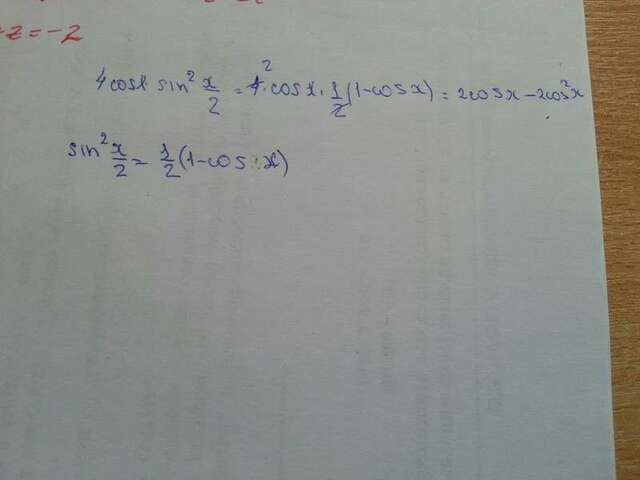 z = -2
4cosx sin² x/2 = 4² · cosx · 1/2 (1-cosx) = 2cosx - 2cos²x
sin² x/2 = 1/2 (1-cos x)